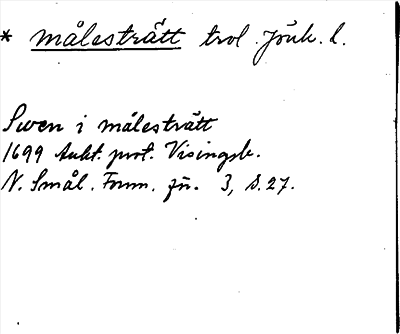 * målesträtt trol. Jönk. l.
Swen i målesträtt
1699 Aukt. prot. Visingsb.
N. Smål. Fornm. för. 3, s. 27.